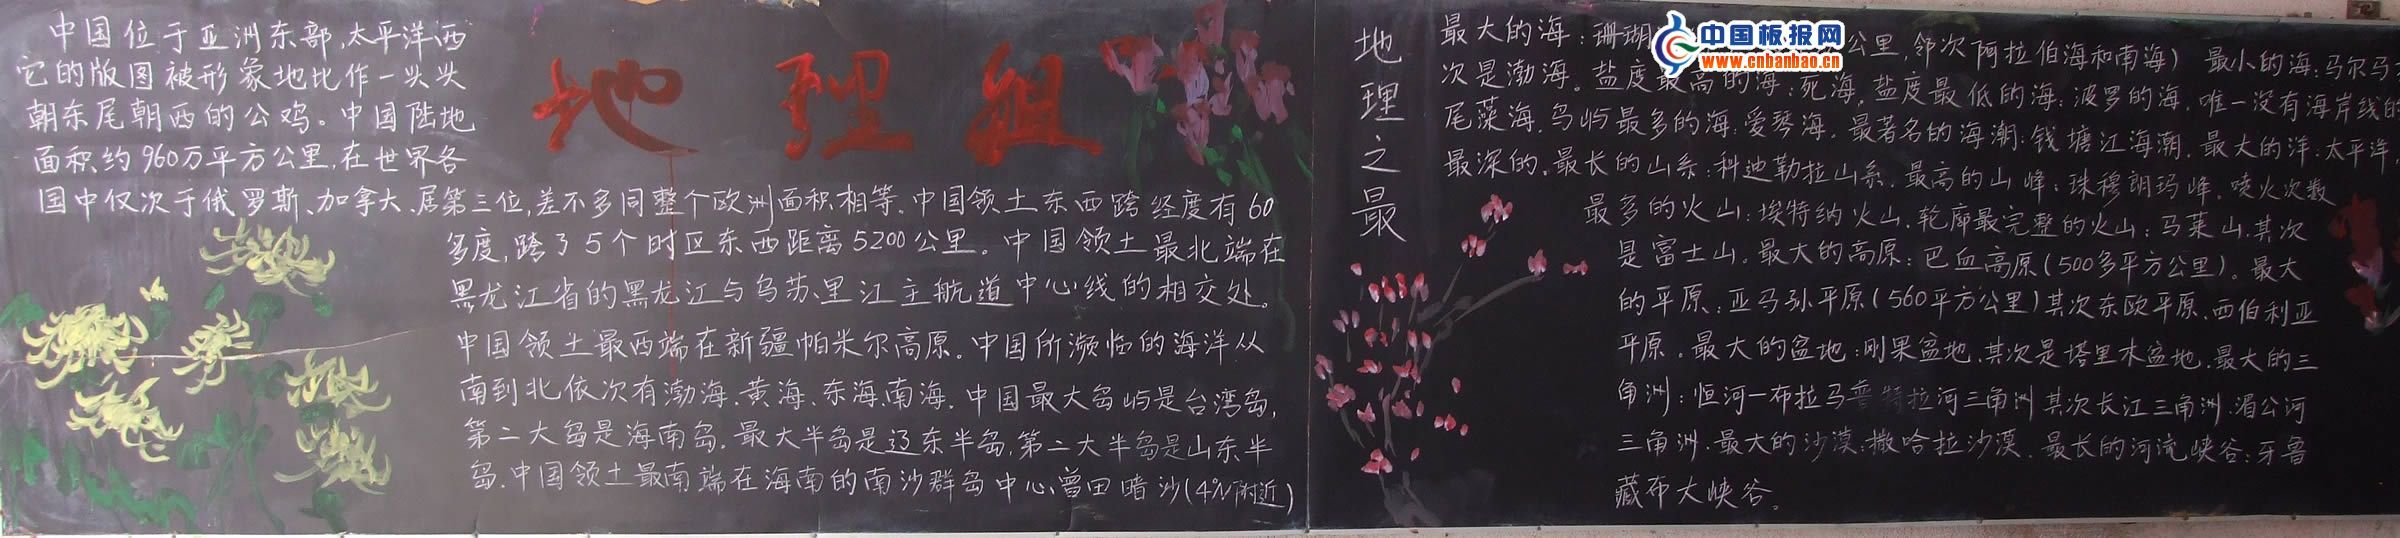 中国位于亚洲东部,太平洋西
它的版图被形象地比作一头头
朝东尾朝西的公鸡。中国陆地
面积约960万平方公里,在世界各
国中仅次于俄罗斯、加拿大、居第三位,差不多同整个欧洲面积相等.中国领土东西跨经度有60
多度,跨了5个时区东西距离5200公里。中国领土最北端在
黑龙江省的黑龙江与乌苏里江主航道中心线的相交处。
中国领土最西端在新疆帕米尔高原。中国所濒临的海洋从
南到北依次有渤海.黄海、东海.南海.中国最大岛屿是台湾岛,
第二大岛是海南岛.最大半岛是辽东半岛,第二大半岛是山东半
岛.中国领土最南端在海南的南沙群岛中心曾田暗沙(4°N附近)
地理组
地理之最
最大的海:珊瑚 公里,邻次阿拉伯海和南海) 最小的海:马尔马
次是渤海。盐度最高的海:死海,盐度最低的海:波罗的海,唯一没有海岸线的
尾藻海,鸟屿最多的海:爱琴海,最著名的海潮:钱塘江海潮,最大的洋:太平洋,
最深的,最长的山系:科迪勒拉山系,最高的山峰:珠穆朗玛峰,喷火次数
最多的火山:埃特纳火山,轮廓最完整的火山:马荣山,其次
是富士山,最大的高原:巴血高原(500多平方公里)。最大
的平原:亚马孙平原(560平方公里)其次东欧平原、西伯利亚
平原。最大的盆地:刚果盆地,其次是塔里木盆地,最大的三
角洲:恒河一布拉马普特拉河三角洲其次长江三角洲.湄公河
三角洲.最大的沙漠:撒哈拉沙漠.最长的河流峡谷:牙鲁
藏布大峡谷。
中国板报网
www.cnbanbao.cn